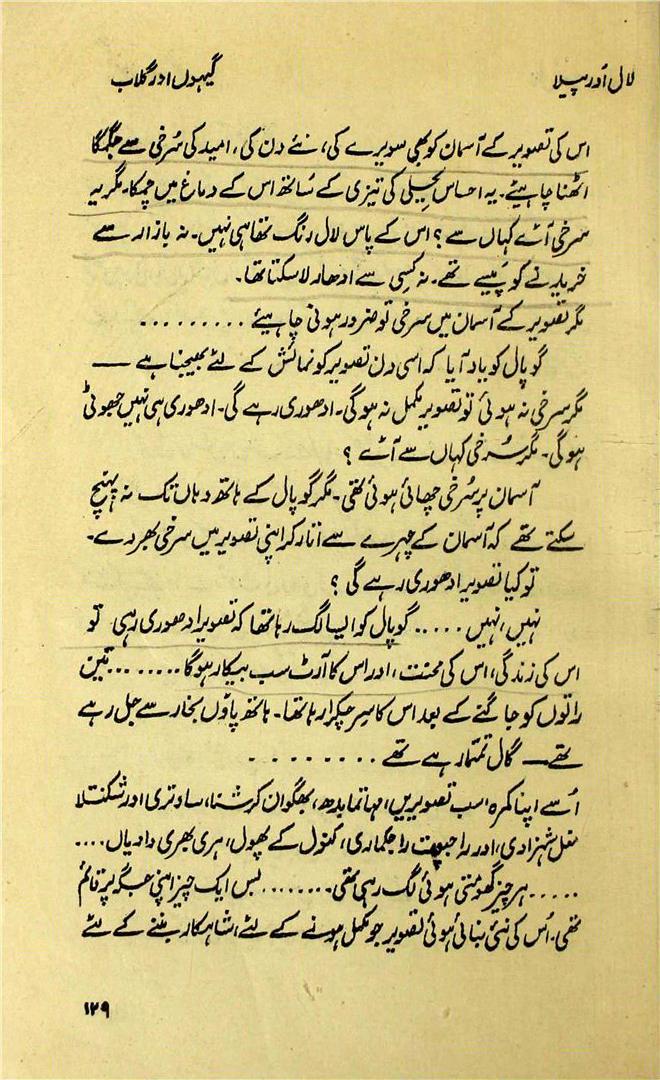 لال اَور پیلا
گیہوں اور گلاب
اس کی تصویر کے آسمان کو بھی سویرے کی، نئے دن کی، امید کی سُرخی سے جگمگا
اٹھنا چاہیئے۔ یہ احساس بجیلی کی تیزی کے سَاتھ اس کے دماغ میں چمکا۔ مگر یہ
سرخی آئے کہاں سے؟ اس کے پاس لال رنگ تھا ہی نہیں۔ نہ بازار سے
خریدنے کو پَیسے تھے۔ نہ کسِی سے ادھار لا سکتا تھا۔
مگر تصویر کے آسمان میں سرخی تو ضرور ہونی چاہیئے .........
گوپال کو یاد آیا کہ اسی دن تصویر کو نمائش کے لئے بھیجنا ہے —
مگر سرخی نہ ہوئی تو تصویر مکمل نہ ہو گی۔ ادھوری رہے گی۔ ادھوری ہی نہیں جھوٹی
ہو گی۔ مگر سُرخی کہاں سے آئے؟
آسمان پر سُرخی چھائی ہوئی تھی۔ مگر گوپال کے ہاتھ وہاں تک نہ پہنچ
سکتے تھے کہ آسمان کے چہرے سے اتار کر اپنی تصویر میں سرخی بھر دے۔
تو کیا تصویر ادھوری رہے گی؟
نہیں، نہیں ..... گوپال کو ایسا لگ رہا تھا کہ تصویر ادھوری رہی تو
اس کی زندگی، اس کی محنت، اور اس کا آرٹ سب بیکار ہو گا ........ تین
راتوں کو جاگنے کے بعد اس کا سر چکرا رہا تھا۔ ہاتھ پاؤں بخار سے جل رہے
تھے— گال تمتما رہے تھے ........
اُسے اپنا کمرہ، سب تصویریں، مہاتما بدھ، بھگوان کرشنا، ساوتری اور شکنتلا
مغل شہزادی، اور راجپوت راجکماری، کنول کے پھول، ہری بھری وادیاں ....
..... ہر چیز گھومتی ہوئی لگ رہی تھی ........ بس ایک چیز اپنی جگہ پر قائم
تھی۔ اُس کی نئی بنائی ہوئی تصویر جو مکمل ہونے کے لئے، شاہکار بننے کے لئے
۱۲۹